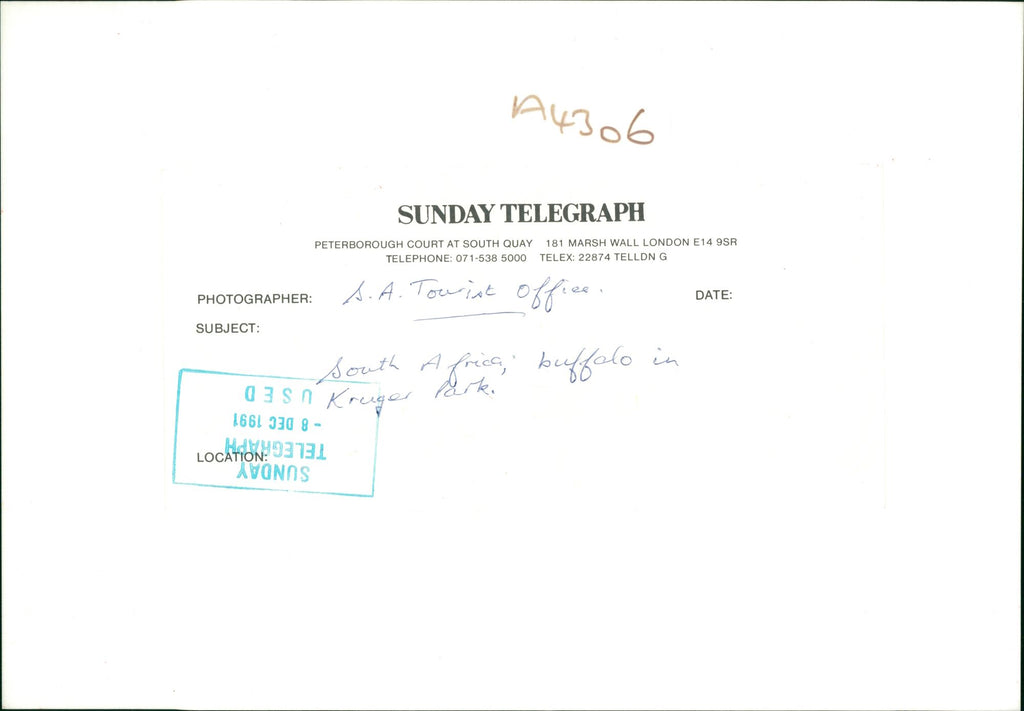 A4306
SUNDAY TELEGRAPH
PETERBOROUGH COURT AT SOUTH QUAY 181 MARSH WALL LONDON E14 9SR
TELEPHONE: 071-538 5000 TELEX: 22874 TELLDN G
PHOTOGRAPHER: S.A. Tourist Office. DATE:
SUBJECT:
South Africa; buffalo in
Kruger Park.
LOCATION:
SUNDAY
TELEGRAPH
- 8 DEC 1991
USED